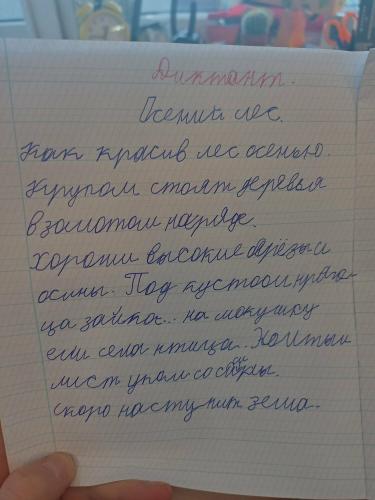 Диктант.
Осений лес.
Как красив лес осенью.
Кругом стоят деревья
в золотом наряде.
Хороши высокие берёзы и
осины. Под кустом
ца зайка.. на макушку
ели села птица.. Жолтый
лист упал со
скоро наступит зема.